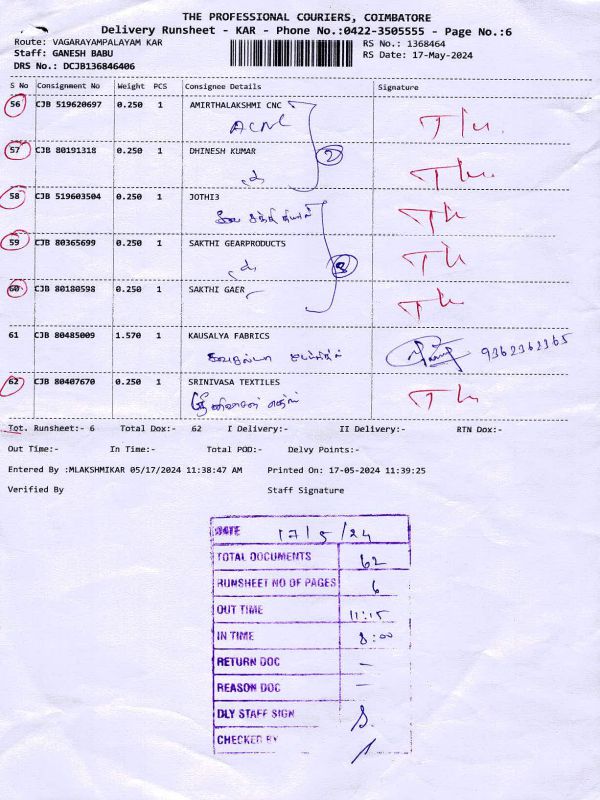 THE PROFESSIONAL COURIERS, COIMBATORE
Delivery Runsheet - KAR - Phone No.:0422-3505555 - Page No.:6
Route: VAGARAYAMPALAYAM KAR RS No.: 1368464
Staff: GANESH BABU RS Date: 17-May-2024
DRS No.: DCJB136846406
S No Consignment No Weight PCS Consignee Details Signature
56 CJB 519620697 0.250 1 AMIRTHALAKSHMI CNC
ACNC
57 CJB 80191318 0.250 1 DHINESH KUMAR
2
58 CJB 519603504 0.250 1 JOTHI3
59 CJB 80365699 0.250 1 SAKTHI GEARPRODUCTS
3
60 CJB 80180598 0.250 1 SAKTHI GAER
61 CJB 80485009 1.570 1 KAUSALYA FABRICS
9362362365
62 CJB 80407670 0.250 1 SRINIVASA TEXTILES
Tot. Runsheet:- 6 Total Dox:- 62 I Delivery:- II Delivery:- RTN Dox:-
Out Time:- In Time:- Total POD:- Delvy Points:-
Entered By :MLAKSHMIKAR 05/17/2024 11:38:47 AM Printed On: 17-05-2024 11:39:25
Verified By Staff Signature
DATE 17/5/24
TOTAL DOCUMENTS 62
RUNSHEET NO OF PAGES 6
OUT TIME 11:15
IN TIME 8:00
RETURN DOC —
REASON DOC —
DLY STAFF SIGN
CHECKED BY